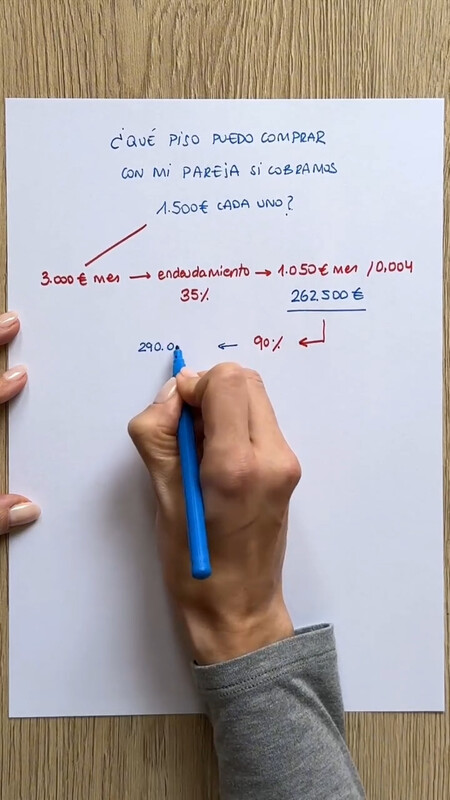 ¿QUÉ PISO PUEDO COMPRAR
CON MI PAREJA SI COBRAMOS
1.500€ CADA UNO?
3.000€ mes → endeudamiento → 1.050€ mes /0,004
35% 262.500€
290.0 ← 90%